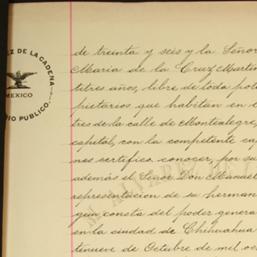 Z DE LA CADENA
MEXICO
IO PUBLICO.
de treinta y seis y la Señor
Maria de la Cruz Martin
titres años, libre de toda pote
pietarios que habitan en e
tres de la calle de Montealegre,
capital, con la competente ca
nes certifico conocer, por su
además el Señor Don Manuel
representacion de su herman
gun consta del poder genera
en la ciudad de Chihuahua
tinueve de Octubre de mil oc